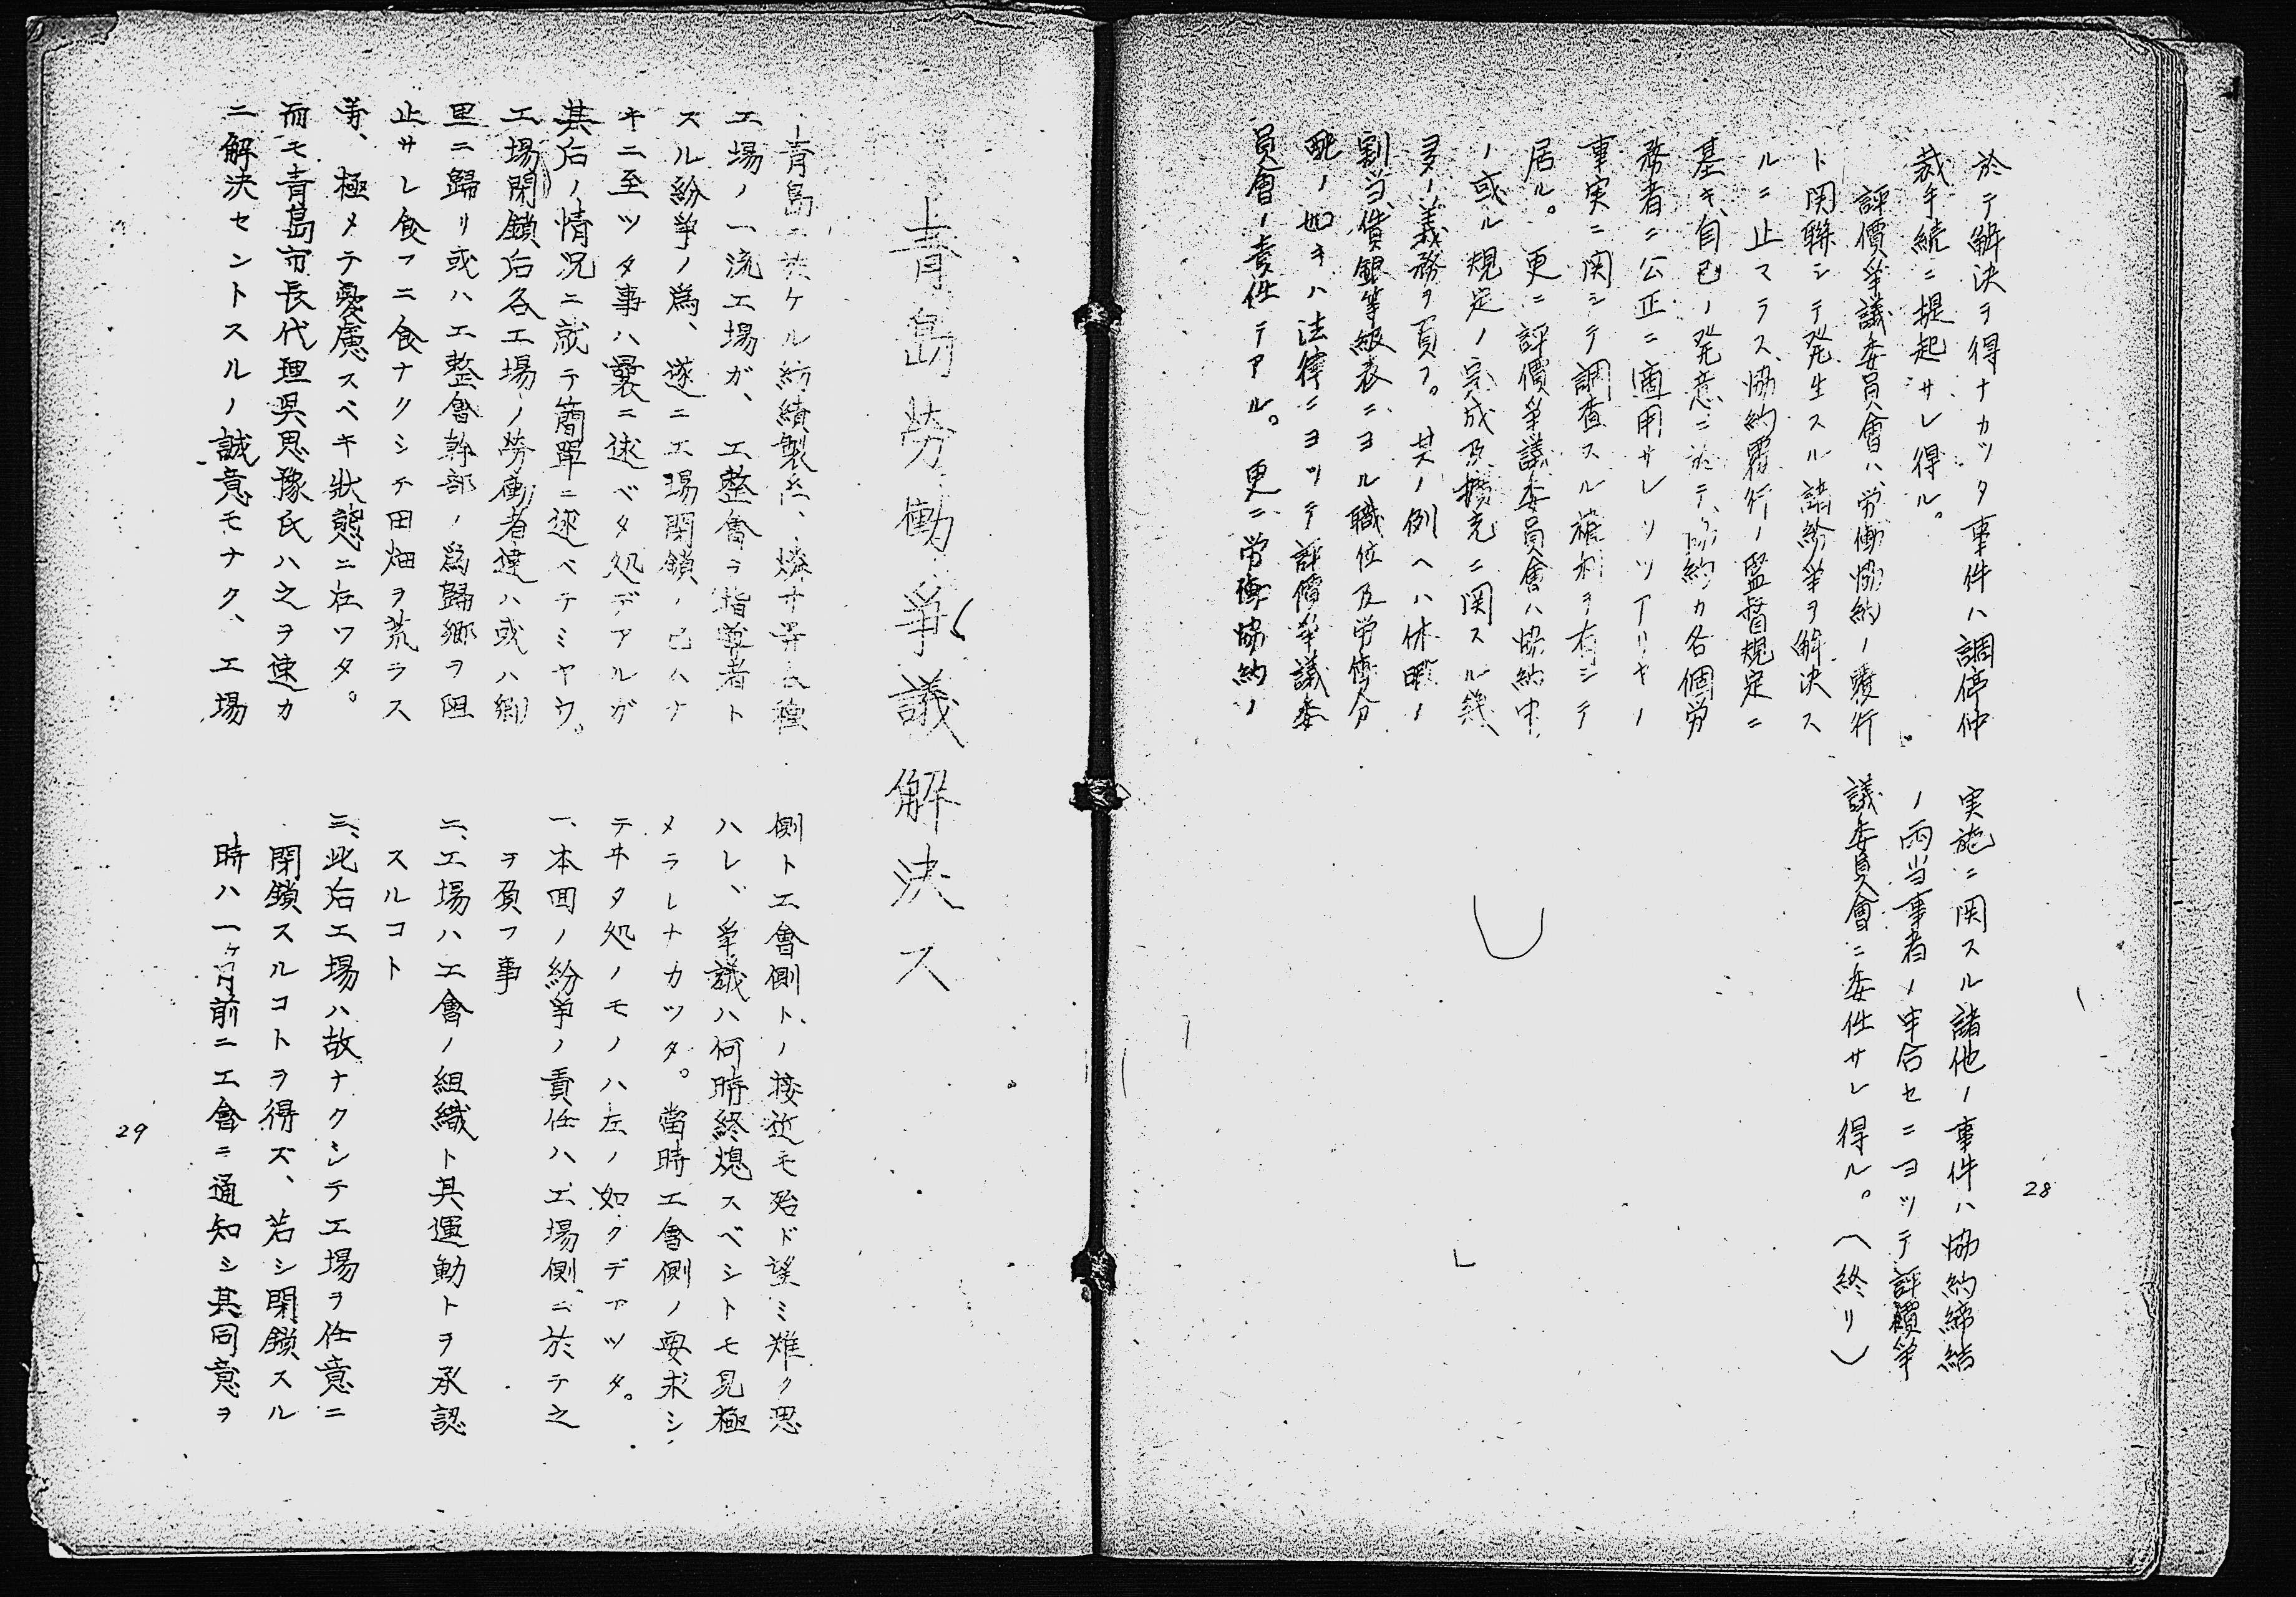 於テ解決ヲ得ナカツタ事件ハ調停仲
裁手続ニ提起サレ得ル。
評價爭議委員會ハ、労働協約ノ履行
ト関聯シテ発生スル諸紛爭ヲ解決ス
ルニ止マラス、協約履行ノ監督規定ニ
基キ、自己ノ発意ニ於テ、協約カ各個労
務者ニ公正ニ適用サレツツアリヤノ
事実ニ関シテ調査スル権利ヲ有シテ
居ル。更ニ評價爭議委員會ハ協約中
ノ或ル規定ノ完成及擴充ニ関スル幾
多ノ義務ヲ負フ。其ノ例ヘハ休暇ノ
割当、賃銀等級表ニヨル職位及労働分
配ノ如キハ法律ニヨツテ評價爭議委
員會ノ責任テアル。更ニ労働協約ノ
実施ニ関スル諸他ノ事件ハ協約締結
ノ両当事者ノ申合セニヨツテ評價爭
議委員會ニ委任サレ得ル。（終リ）
28
青島労働爭議解決ス
青島ニ於ケル紡績製糸、燐寸等各種
工場ノ一流工場ガ、工整會ヲ指導者ト
スル紛爭ノ爲、遂ニ工場閉鎖ノ已ムナ
キニ至ツタ事ハ曩ニ述ベタ処デアルガ
其后ノ情況ニ就テ簡單ニ述ベテミヤウ。
工場閉鎖后各工場ノ勞働者達ハ或ハ郷
里ニ歸リ或ハ工整會幹部ノ爲歸郷ヲ阻
止サレ食フニ食ナクシテ田畑ヲ荒ラス
等、極メテ憂慮スベキ狀態ニ在ツタ。
而モ青島市長代理呉思豫氏ハ之ヲ速カ
ニ解決セントスルノ誠意モナク、工場
側ト工會側トノ接近モ殆ド望ミ難ク思
ハレ、爭議ハ何時終熄スベシトモ見極
メラレナカツタ。當時工會側ノ要求シ
テヰタ処ノモノハ左ノ如クデアツタ。
一、本回ノ紛爭ノ責任ハ、工場側ニ於テ之
ヲ負フ事
二、工場ハ工會ノ組織ト其運動トヲ承認
スルコト
三、此后工場ハ故ナクシテ工場ヲ任意ニ
閉鎖スルコトヲ得ズ、若シ閉鎖スル
時ハ一ケ月前ニ工會ニ通知シ其同意ヲ
29